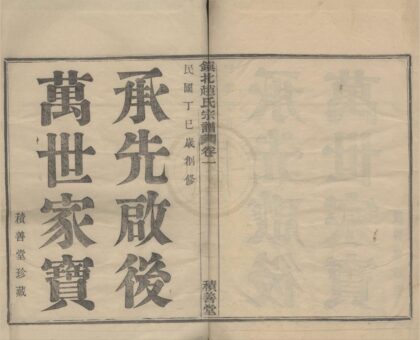 鎮北趙氏宗譜
卷一
積善堂
民國丁巳歲創修
承先啟後
萬世家寶
積善堂珍藏